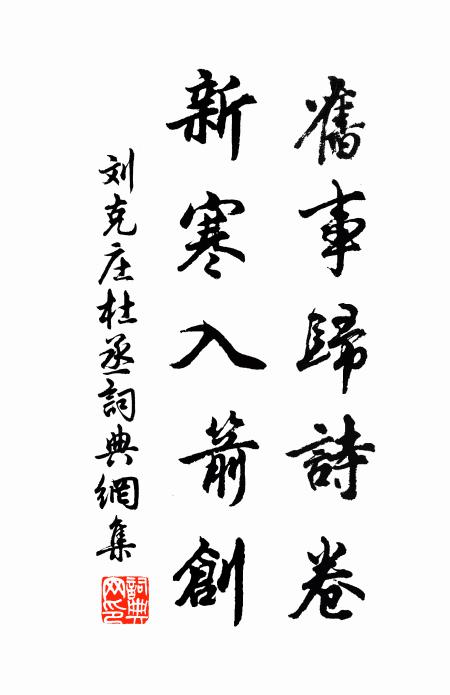 舊事歸詩卷
新寒入箭創
刘克庄杜丞詞典網集
詞典网印